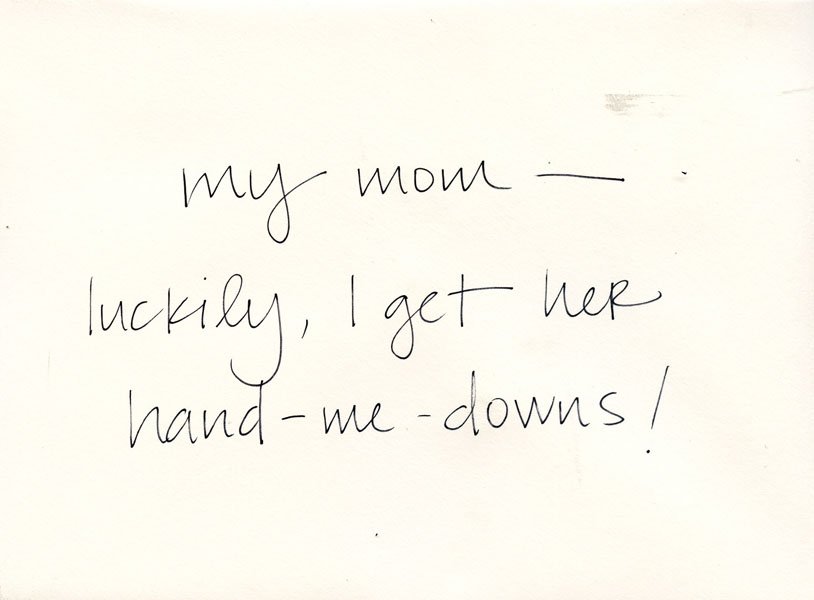 my mom —
luckily, I get her
hand-me-downs!